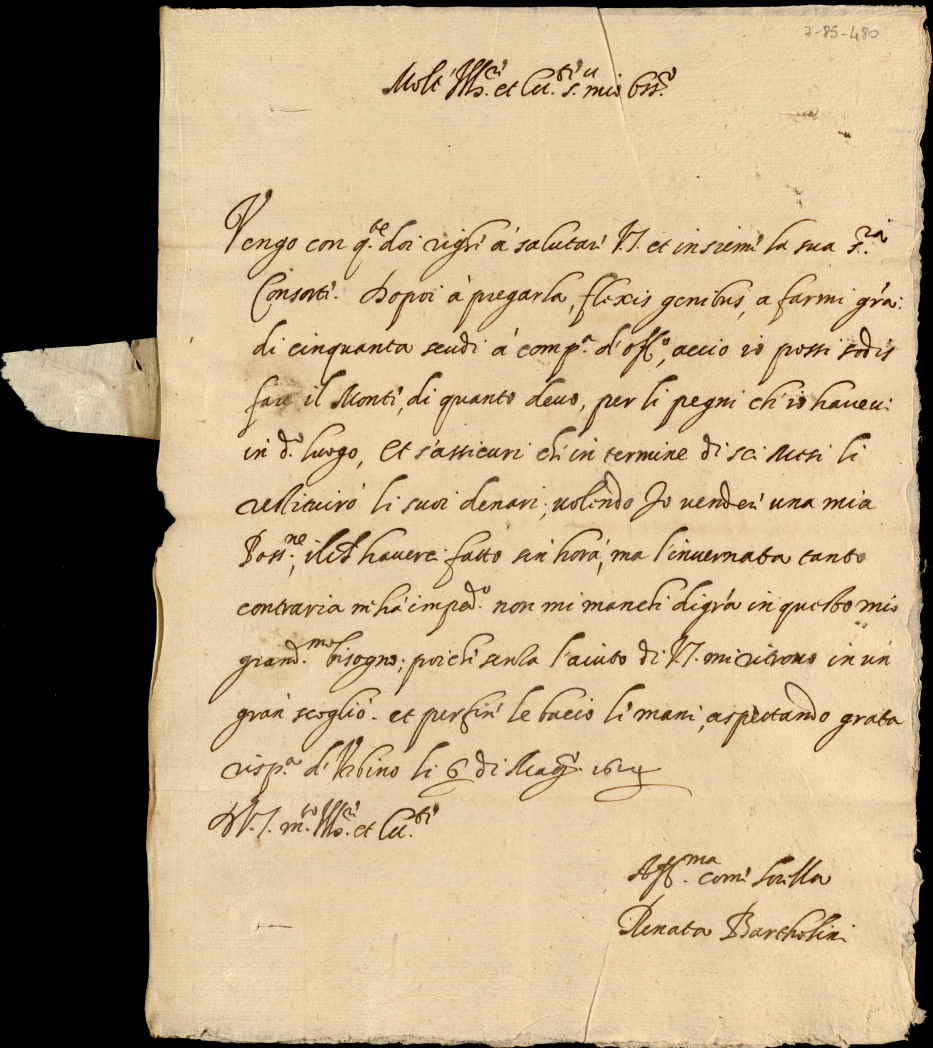 7-85-480
Molt' Ill.ri et Ecc.ti s. mio oss.
Vengo con q.te doi righi à salutar' V.S. et insiem' la sua s.ra
Consorti. Dopoi à pregarla, flexis genibus, a farmi gr'a:
di cinquanta scudi à comp.a d'off.o, acciò io possi sodis
fare il Monti, di quanto devo, per li pegni ch'io havevi
in d.o luogo, Et s'assicuri ch'in termine di sei Mesi li
restituirò li suoi denari, volendo Io vender' una mia
Poss.ne, havere fatto sin'hora, ma l'invernata tanto
contraria m'hà imped.o non mi manchi di gr'a in questo mio
grand.mo bisogno; poichi senza l'aiuto di V.S. mi ritrovo in un'
gran' scoglio. et per fin' le bacio li mani, aspettando grata
risp.a d'Urbino li 6 di Magg. 1624
D V.S. m.to Ill.ri et Ecc.ti
Aff.ma com' sorella
Renata Bartholini